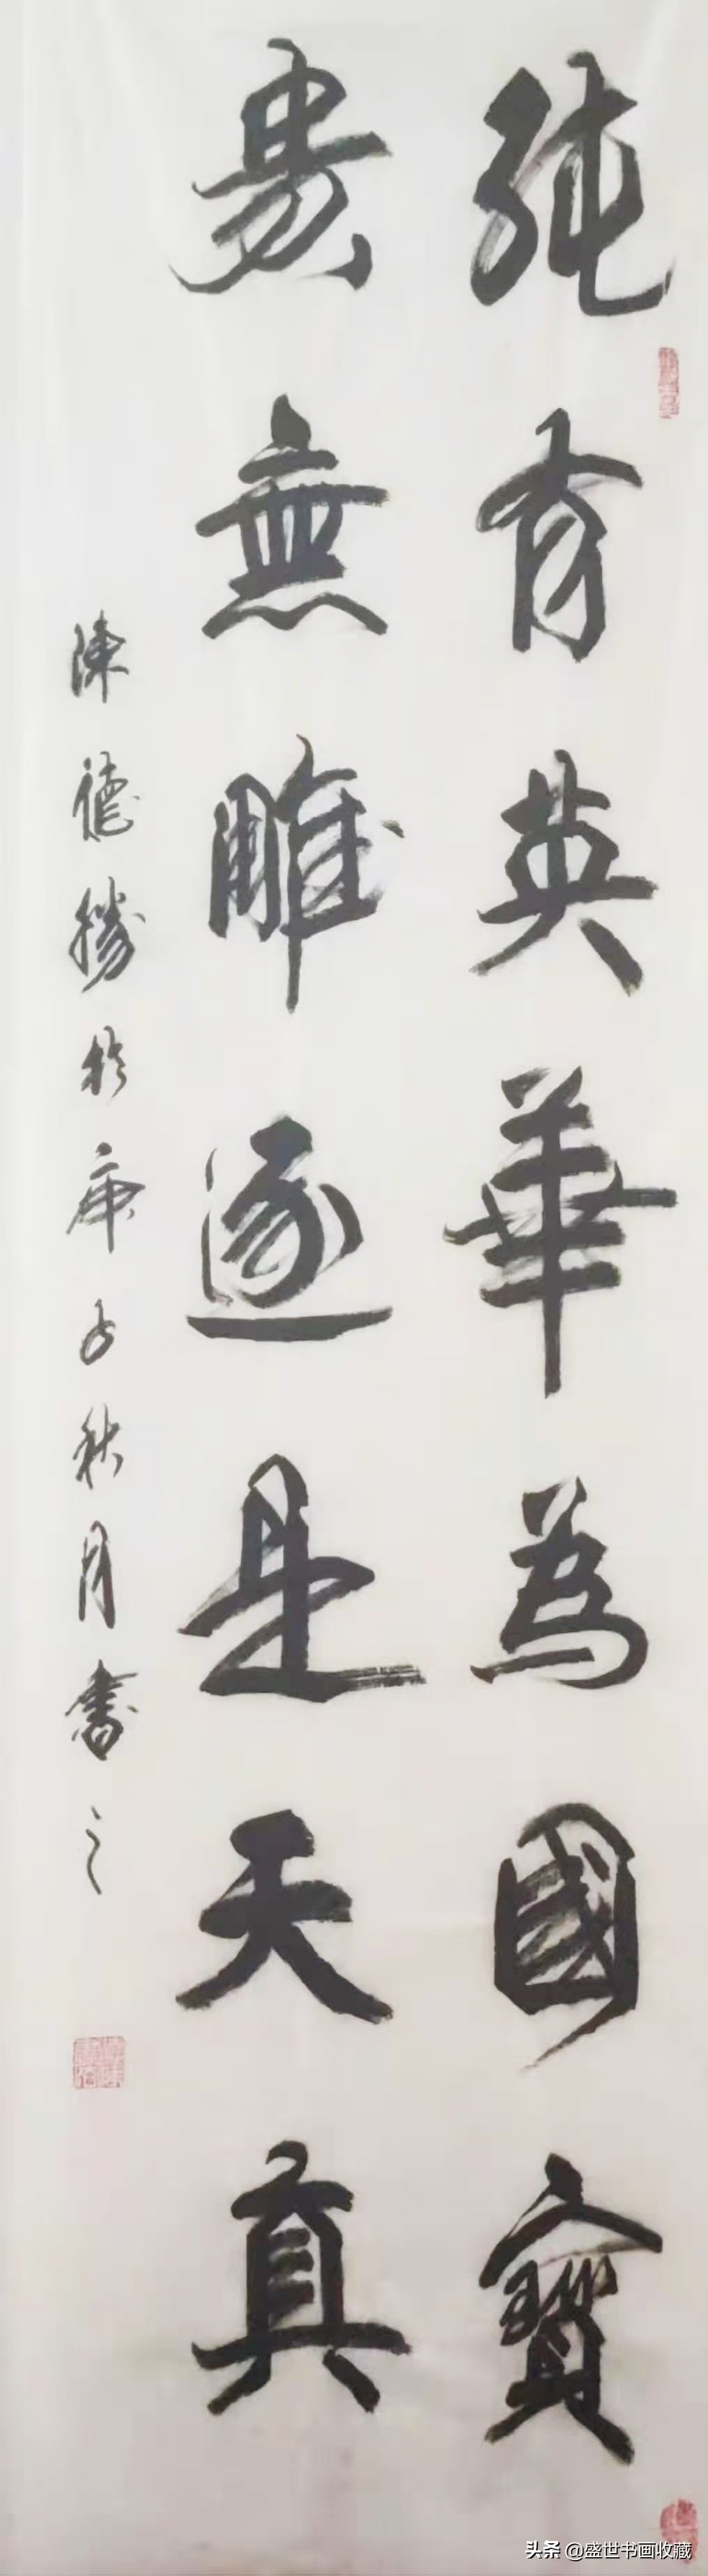 純有英華為國寶
貴無雕逐是天真
陳德勝於庚子秋月書之
头条 @盛世书画收藏